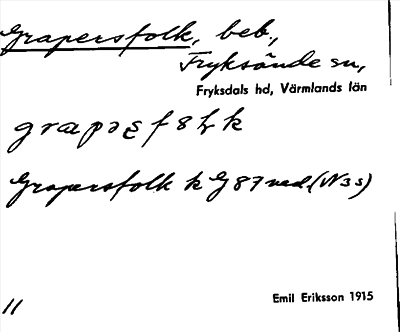 Grapersfolk, beb.,
Fryksände sn,
Fryksdals hd, Värmlands län
Grapersfolk k G 87 ned. (N3s)
Emil Eriksson 1915
11